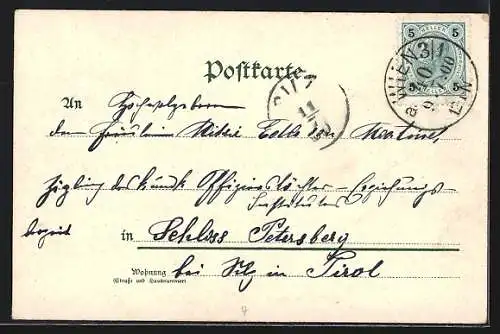 5 HELLER 5
5 5
WIEN 3/1
Postkarte.
SILZ
11
An Hochwohlgeboren
dem Fräulein Mitzi Edle von
Zögling des k. und k. Offizierstöchter-Erziehungs-
Institutes
in Schloss Petersberg
Wohnung bei Silz in Tirol
(Straße und Hausnummer)